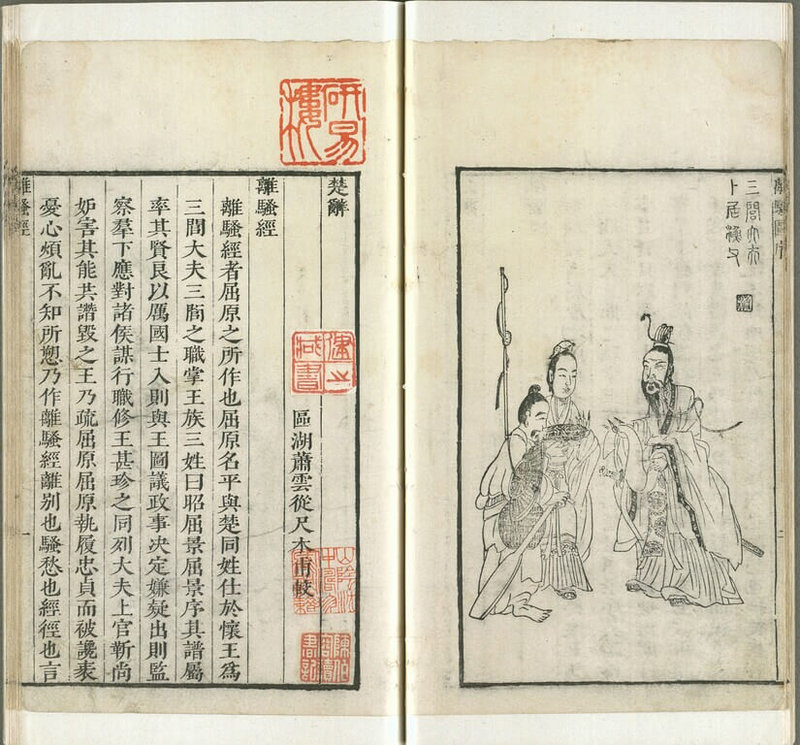 三閭大夫
卜居漁父
研易樓
楚辭
區湖蕭雲從尺木甫較
離騷經
離騷經者屈原之所作也屈原名平與楚同姓仕於懷王爲
三閭大夫三閭之職掌王族三姓曰昭屈景屈景序其譜屬
率其賢良以厲國士入則與王圖議政事決定嫌疑出則監
察羣下應對諸侯謀行職修王甚珍之同列大夫上官靳尚
妒害其能共譖毀之王乃疏屈原屈原執履忠貞而被讒衺
憂心煩亂不知所愬乃作離騷經離別也騷愁也經徑也言
離騷經
一